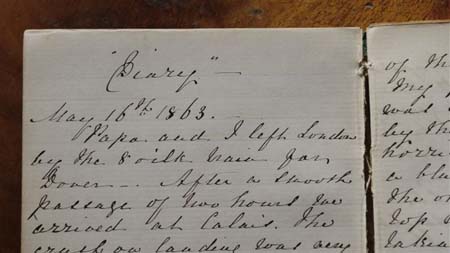 "Diary" —
May 16th 1863. —
Papa and I left London
by the 8 o'clk train for
Dover —. After a smooth
passage of two hours we
arrived at Calais. The
crush on landing was very
of th
My
was
by th
horri
a blu
the o
top
takin